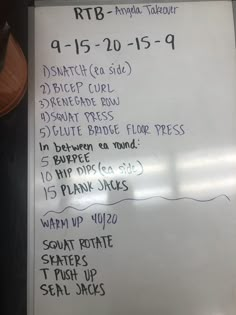 RTB - Angela Takeover
9-15-20-15-9
1) SNATCH (ea side)
2) BICEP CURL
3) RENEGADE ROW
4) SQUAT PRESS
5) GLUTE BRIDGE FLOOR PRESS
In between ea round:
5 BURPEE
10 HIP DIPS (ea side)
15 PLANK JACKS
WARM UP 40/20
SQUAT ROTATE
SKATERS
T PUSH UP
SEAL JACKS